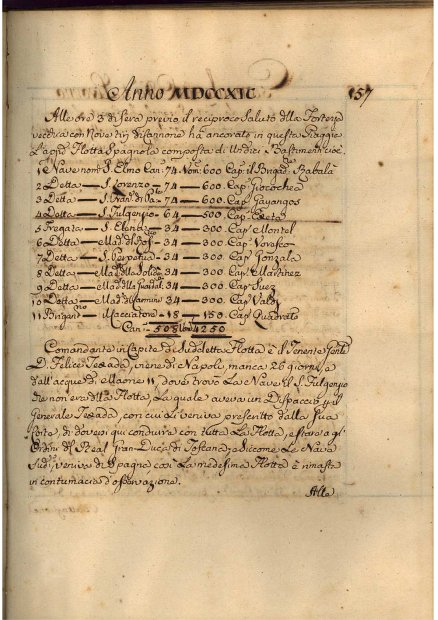 Anno MDCCXIC 157
Alle ore 3 di sera previo il reciproco Saluto della Fortezza
vecchia con Nove tiri di Cannone ha ancorato in questa Piaggia
La Flotta Spagnola composta di Undici Bastimenti cioè
1 Nave nom: S. Elmo Can: 74 Uom: 600 Cap: il Brigad: Babala
2 Detta — S. Lorenzo — 74 — 600 Cap: Giocochea
3 Detta — S. Fran: di Pa: — 74 — 600 Cap: Gayangos
4 Detta — S. Fulgenzio — 64 — 500 Cap:
5 Fregata — S. Elena — 34 — 300 Cap: Montel
6 Detta — Mad: del — 34 — 300 Cap: Vorasco
7 Detta — S. Perpetua — 34 — 300 Cap: Gonzala
8 Detta — Mad: della — 34 — 300 Cap: Martinez
9 Detta — Mad: della — 34 — 300 Cap: Suez
10 Detta — Mad: di Carmine — 34 — 300 Cap: Valdz
11 Brigan:no — Cacciatore — 18 — 150 Cap: Quadrato
Can: 508 Uom: 4250
Comandante in Capite di Sud:detta Flotta è il Tenente Gen:le
D. Felice Texada, viene di Napoli, manca 26 giorni, e
dall'acque di 11, dove trovò La Nave il S. Fulgenzio
che non era della Flotta, La quale aveva un Dispaccio p. il
Generale Texada, con cui Li veniva prescritto dalla Sua
Corte, di dover qui condursi con tutta La Flotta, e stare a gl'
Ordini del Real Gran Duca di Toscana, e Siccome Le Nave
Sud:a veniva di Spagna così La medesima Flotta è rimasta
in contumacia d'osservazione.
Alle